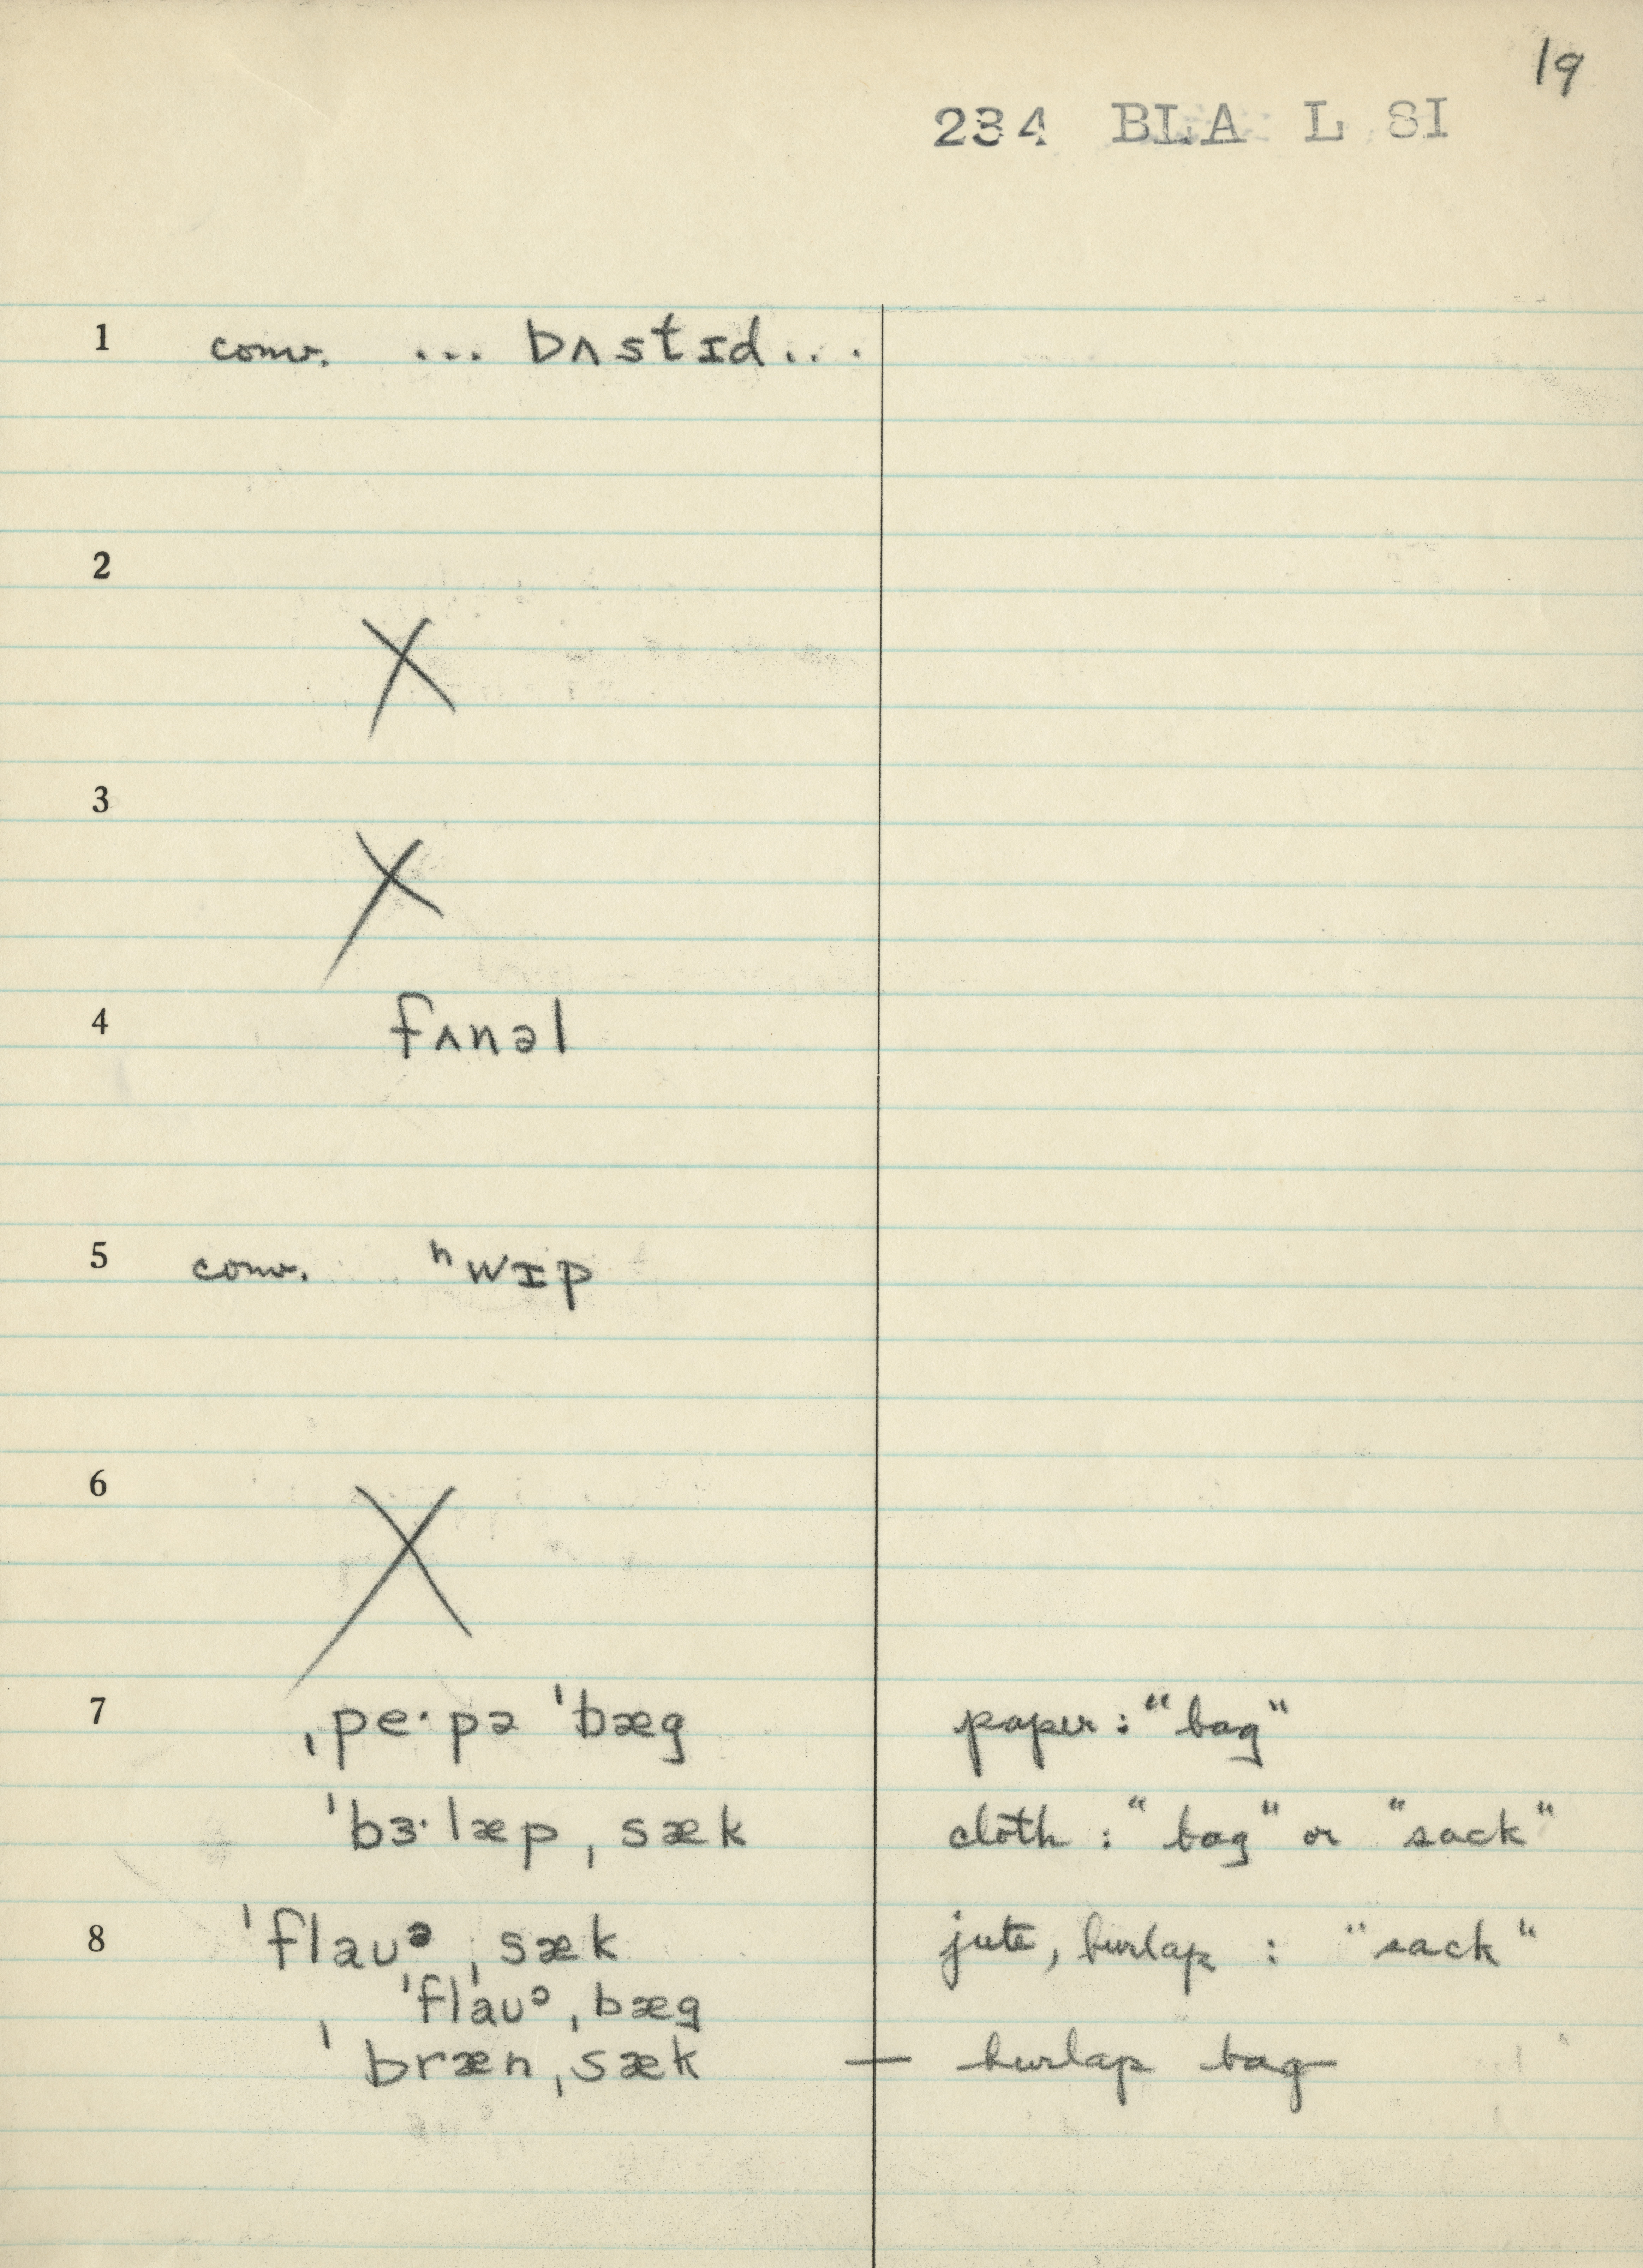 19
234 BLA L SI
1 conv. ... bʌstɪd...
2 X
3 X
4 fʌnəl
5 conv. ʰwɪp
6 X
7 ˌpe·pə ˈbæg paper: "bag"
ˈbɜ·læp ˌsæk cloth: "bag" or "sack"
8 ˈflaʊᵊ ˌsæk jute, burlap : "sack"
ˈflaʊᵊ ˌbæg
ˈbræn ˌsæk — burlap bag